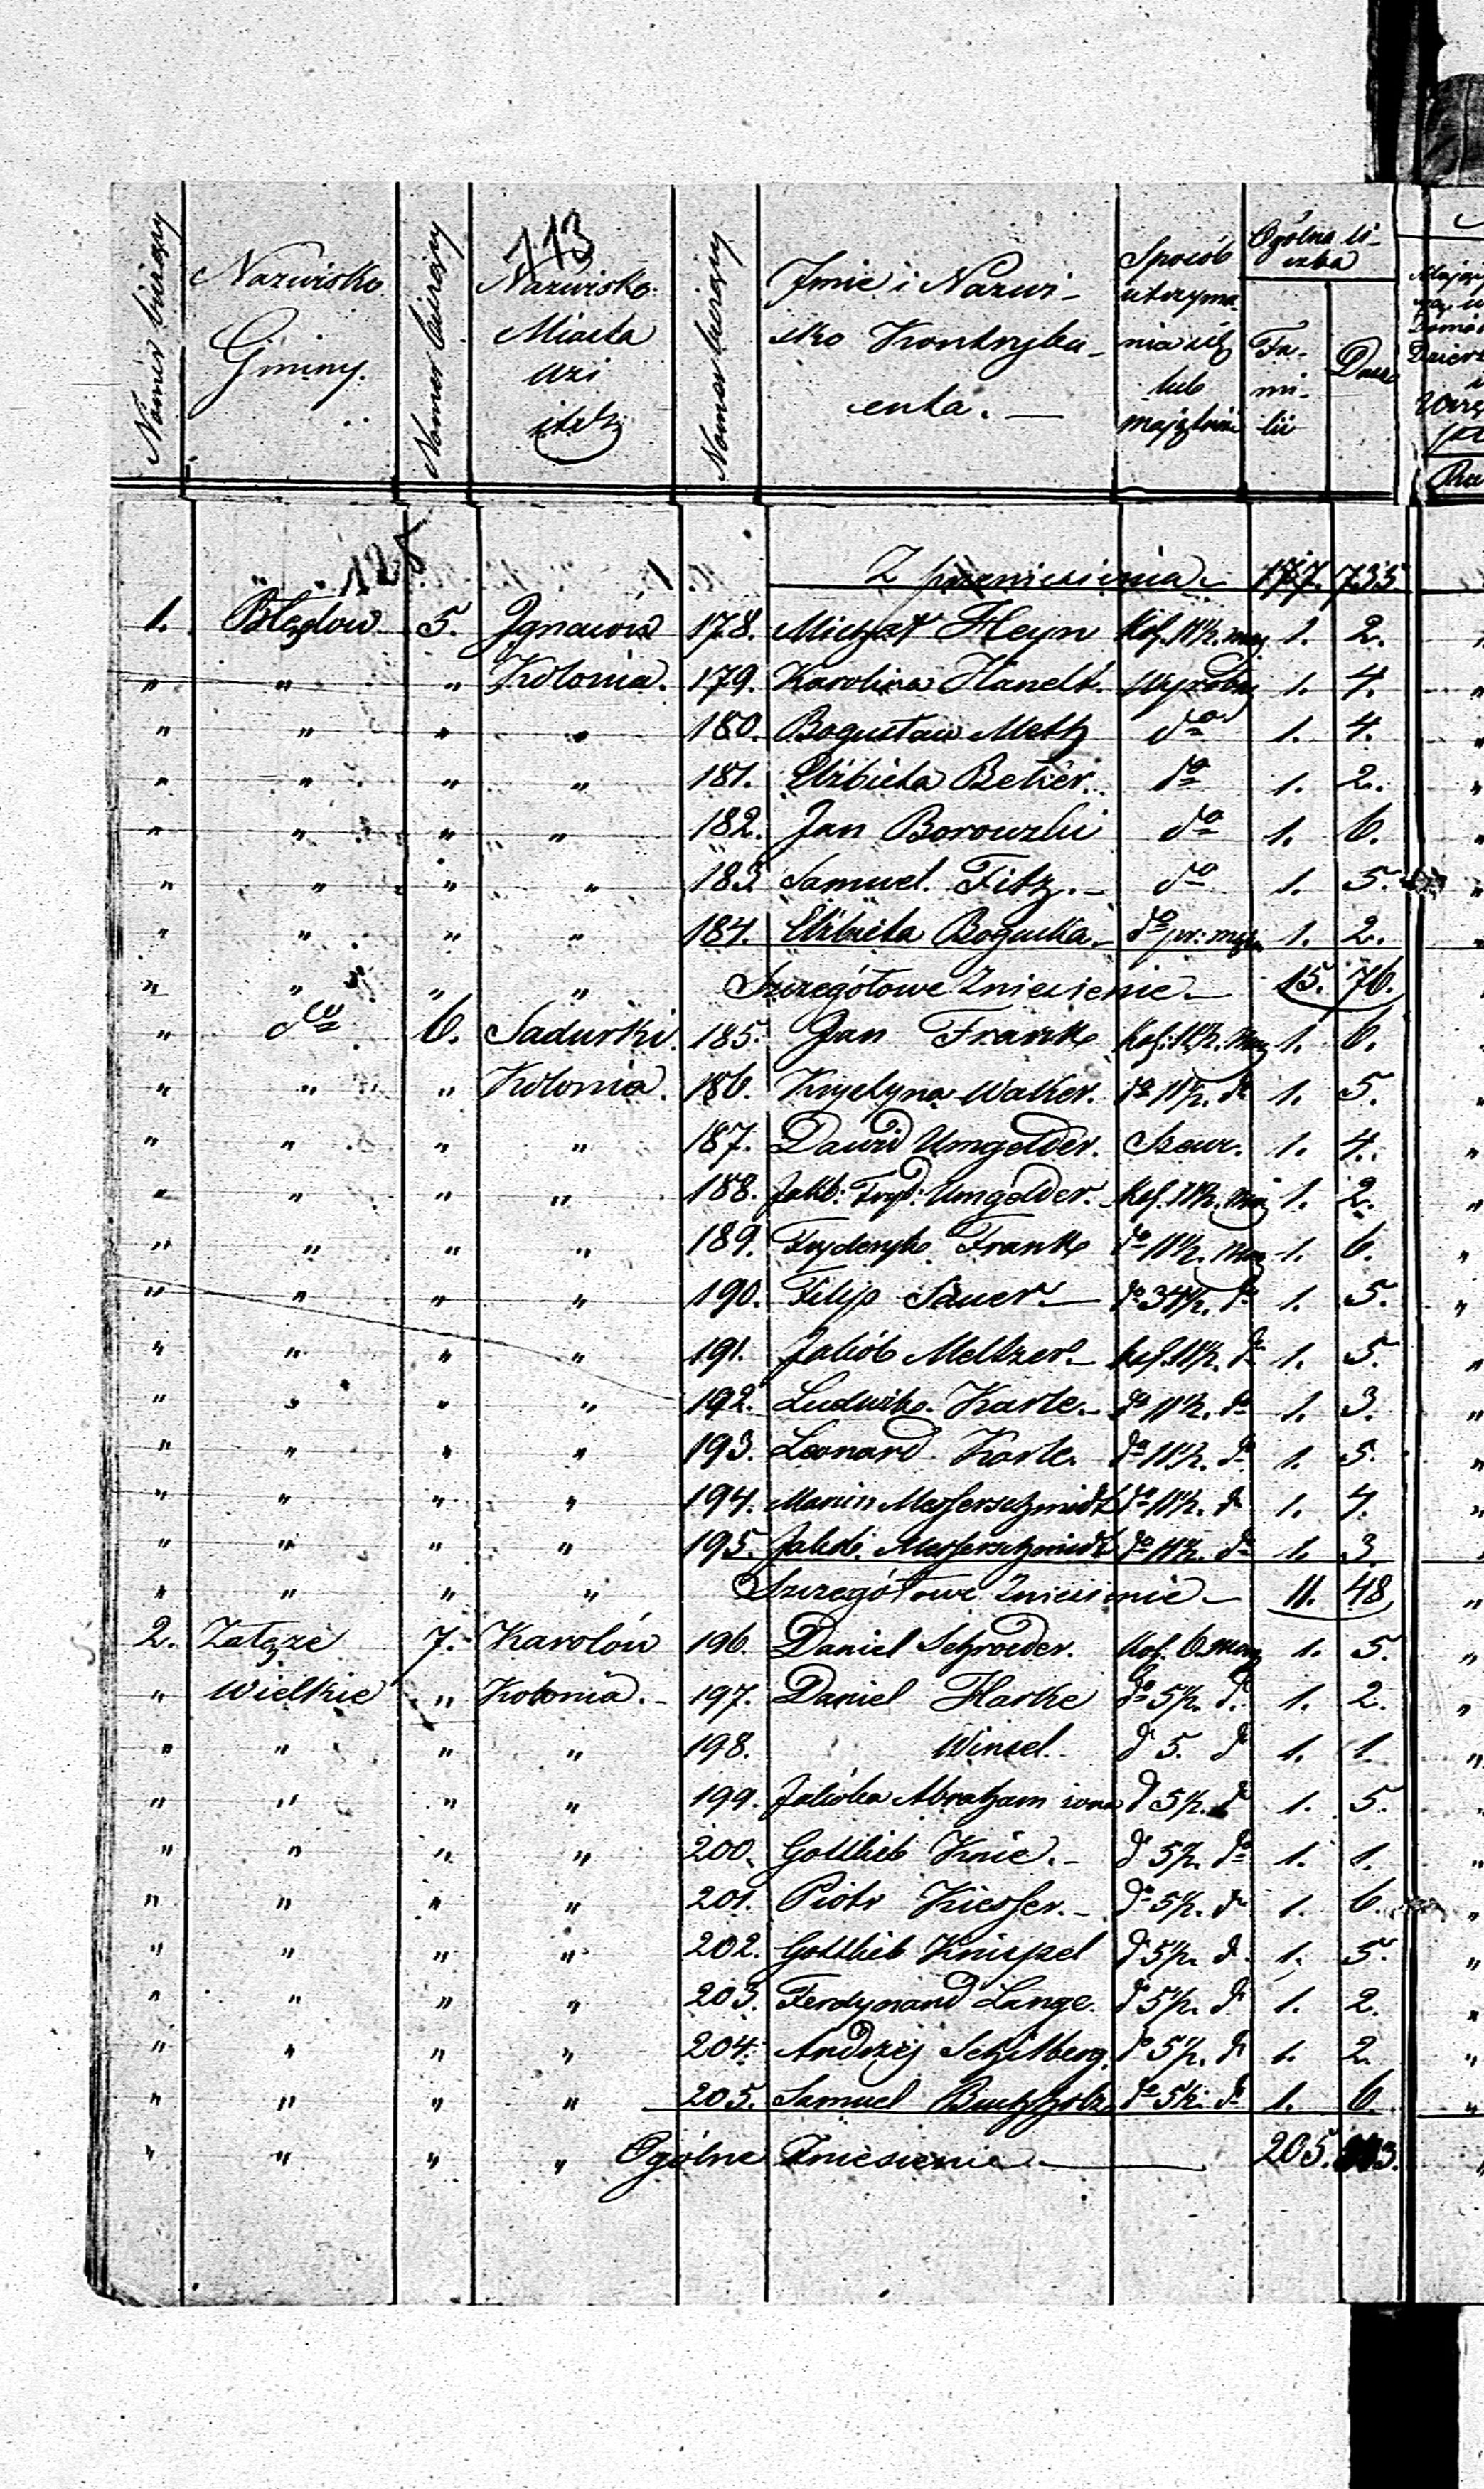 113
Numer bieżący
Nazwisko Gminy.
Numer bieżący
Nazwisko Miasta wsi
Numer bieżący
Imie i Nazwi- sko Kontrybu- enta. —
Sposób utrzyma- nia się lub
Ogólna li- czba
Fa- mi- lii
Dusz
128
Z przeniesienia 177. 735.
1. Błędow 5. Ignacow 178. Michał Heyn Kol. 11½. mor 1. 2.
" " " Kolonia. 179. Karolina Handt. Wyrobn 1. 4.
" " " " 180. Bogusław Metz do 1. 4.
" " " " 181. Elżbieta Beker. do 1. 2.
" " " " 182. Jan Borowski do 1. 6.
" " " " 183. Samuel Fitz. — do 1. 5.
" " " " 184. Elżbieta Bogucka do pr: 1. 2.
" " " " Szczegółowe Zniesienie — 15. 76.
" do 6. Sadurki. 185. Jan Frank Kol. 11½. mor 1. 6.
" " " Kolonia. 186. Krystyna Walker. do 11½. do 1. 5.
" " " " 187. Dawid Umgelder. Szewc. 1. 4.
" " " " 188. Jakb: Fryd: Umgelder. Kol. 11½. mor 1. 2.
" " " " 189. Fryderyk Frank do 11½. mor 1. 6.
" " " " 190. Filip Sauer — do 34½. do 1. 5.
" " " " 191. Jakób Meltzer — Kol. 11½. do 1. 5.
" " " " 192. Ludwika Karle. — do 11½. do 1. 3.
" " " " 193. Leonard Karle. do 11½. do 1. 5.
" " " " 194. Marcin Messerschmidt do 11½. do 1. 4.
" " " " 195. Jakób. Messerschmidt do 11½. do 1. 3.
" " " " Szczegółowe Zniesienie — 11. 48
2. Załąże 7. Karolów 196. Daniel Schroeder. Kol. 6. mor 1. 5.
" Wielkie " Kolonia. — 197. Daniel Harke do 5½. do 1. 2.
" " " " 198. Winsel. do 5. do 1. 1.
" " " " 199. Jakóba Abraham żona do 5½. do 1. 5.
" " " " 200. Gottlieb Knie. — do 5½. do 1. 1.
" " " " 201. Piotr Kiesser. — do 5½. do 1. 6.
" " " " 202. Gottlieb Knispel do 5½. do 1. 5.
" " " " 203. Ferdynand Lange. do 5½. do 1. 2.
" " " " 204. Andrzej Schilberg. do 5½. do 1. 2.
" " " " 205. Samuel Buchholz do 5½. do 1. 6.
" " " " Ogólne Zniesienie. — 205.